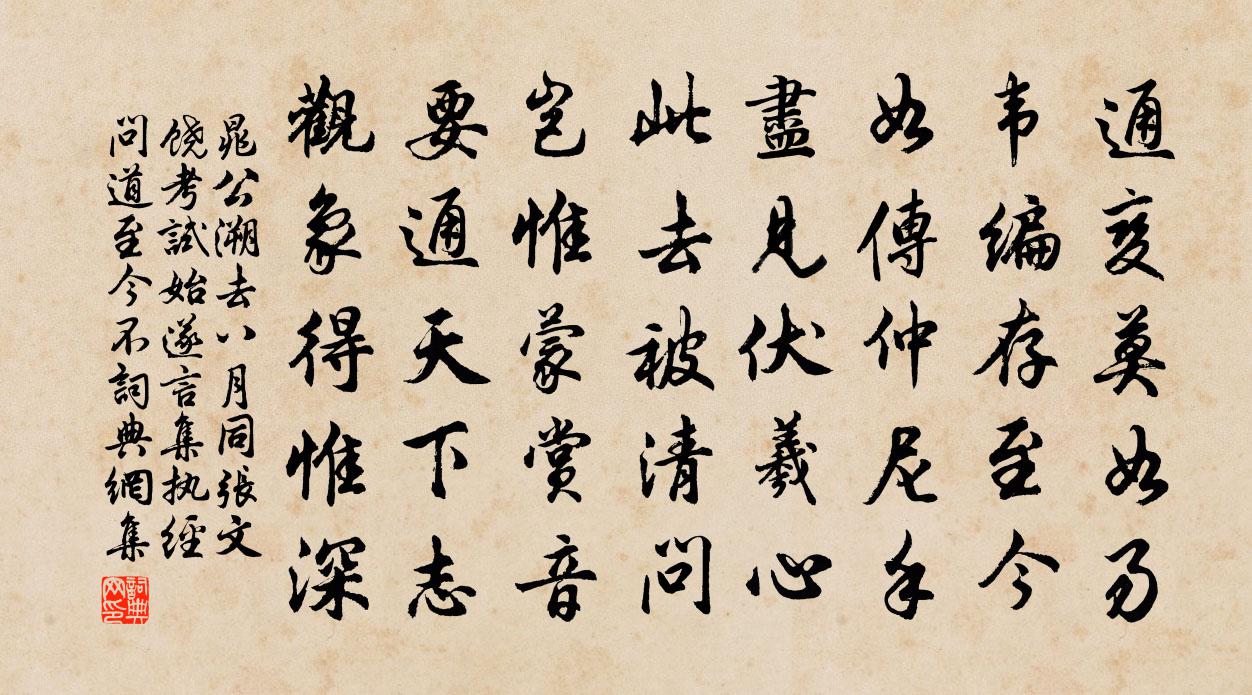 通變莫如易
韦编存至今
如傳仲尼手
盡見伏羲心
此去被清問
豈惟蒙賞音
要通天下志
觀象得惟深
晁公溯去八月同張文
饶考試始遂言集执經
問道至今不詞典網集
詞典
网印